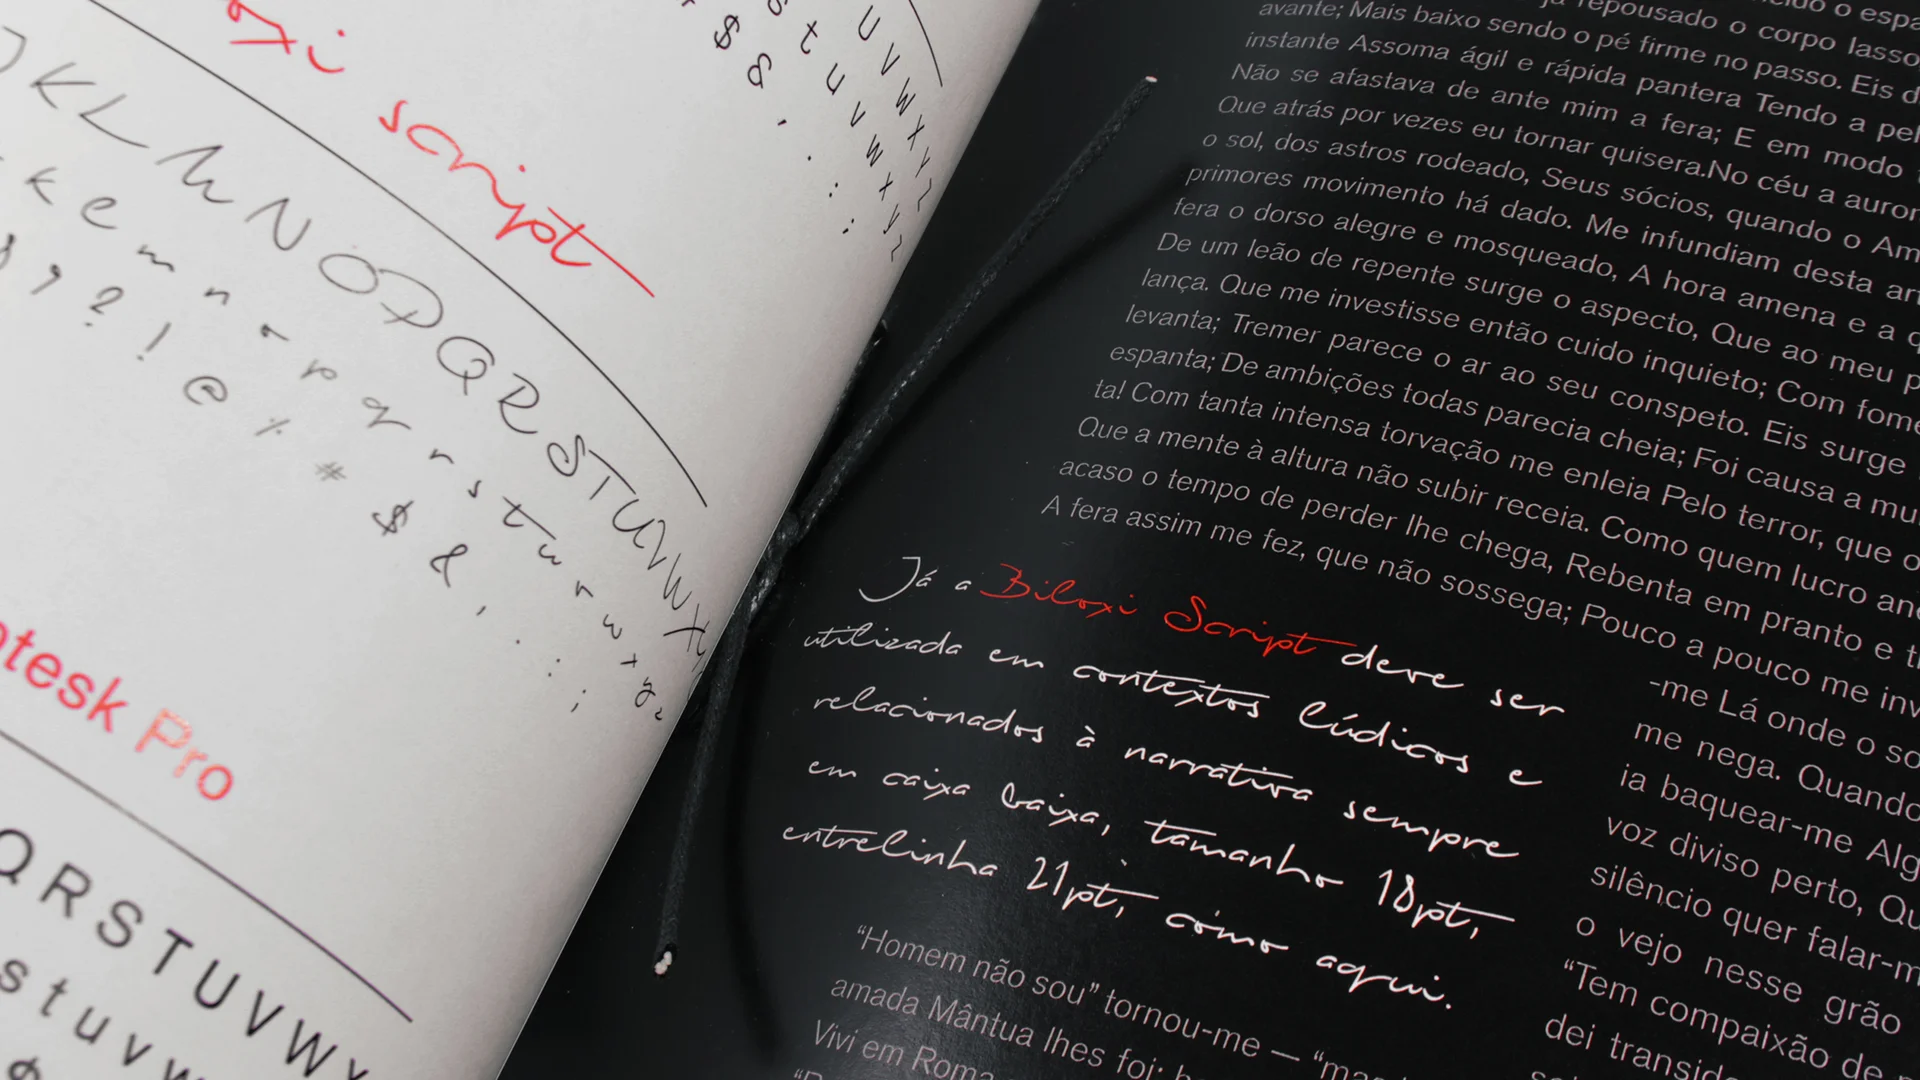 script
K L M N O P Q R S T U V W X Y
k l m n o p q r s t u v w x y z
? ! @ % # $ & , . : ;
tesk Pro
Q R S T U V W X
s t u v w
s t u v w x y z
U V W X Y Z
$ & , . : ;
o espa
repousado o corpo lasso
avante; Mais baixo sendo o pé firme no passo. Eis
instante Assoma ágil e rápida pantera Tendo a pel
Não se afastava de ante mim a fera; E em modo
Que atrás por vezes eu tornar quisera.No céu a auror
o sol, dos astros rodeado, Seus sócios, quando o Am
primores movimento há dado. Me infundiam desta ar
fera o dorso alegre e mosqueado, A hora amena e a q
De um leão de repente surge o aspecto, Que ao meu p
lança. Que me investisse então cuido inquieto; Com fome
levanta; Tremer parece o ar ao seu conspeto. Eis surge
espanta; De ambições todas parecia cheia; Foi causa a mu
ta! Com tanta intensa torvação me enleia Pelo terror, que o
Que a mente à altura não subir receia. Como quem lucro an
acaso o tempo de perder lhe chega, Rebenta em pranto e t
A fera assim me fez, que não sossega; Pouco a pouco me inv
-me Lá onde o so
me nega. Quando
ia baquear-me Alg
voz diviso perto, Qu
silêncio quer falar-m
o vejo nesse grão
“Tem compaixão de
dei transid
Já a Biloxi Script deve ser
utilizada em contextos lúdicos e
relacionados à narrativa sempre
em caixa baixa, tamanho 18pt,
entrelinha 21pt, como aqui.
“Homem não sou” tornou-me — “ma
amada Mântua lhes foi;
Vivi em Roma